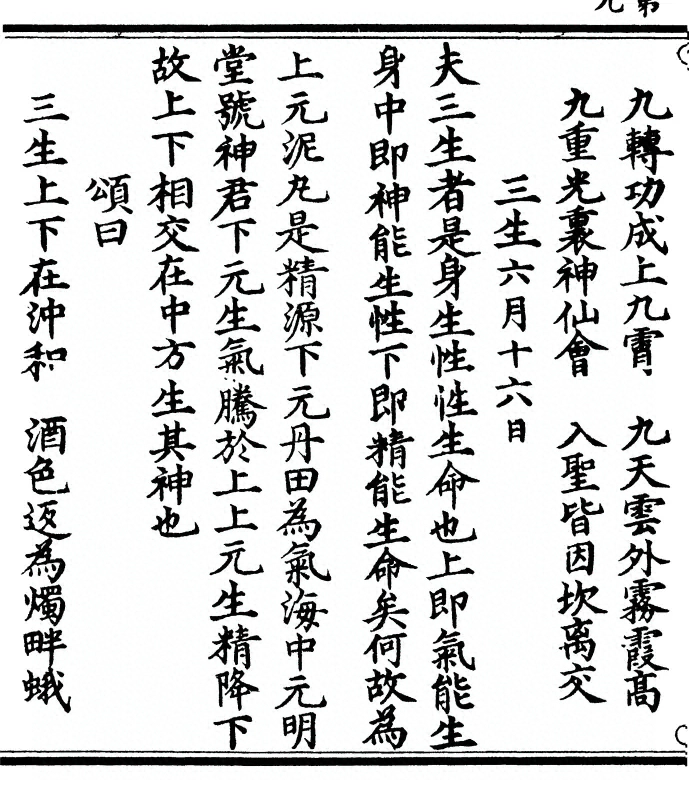 第九
九轉功成上九霄　九天雲外霧霞高
九重光裏神仙會　入聖皆因坎离交
三生六月十六日
夫三生者是身生性性生命也上即氣能生
身中即神能生性下即精能生命矣何故為
上元泥丸是精源下元丹田為氣海中元明
堂號神君下元生氣騰於上上元生精降下
故上下相交在中方生其神也
頌曰
三生上下在沖和　酒色返為燭畔蛾